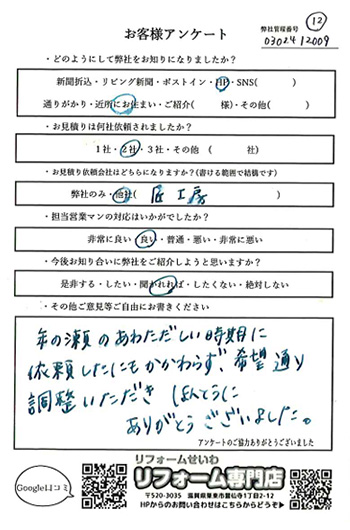 ⑫
お客様アンケート
弊社管理番号
0302412009
・どのようにして弊社をお知りになりましたか？
新聞折込・リビング新聞・ポストイン・HP・SNS(　　　)
通りがかり・近所にお住まい・ご紹介(　　　様)・その他(　　　)
・お見積りは何社依頼されましたか？
1社・2社・3社・その他 (　　　社)
・お見積り依頼会社はどちらになりますか？(書ける範囲で結構です)
弊社のみ・他社( 匠工房 )
・担当営業マンの対応はいかがでしたか？
非常に良い・良い・普通・悪い・非常に悪い
・今後お知り合いに弊社をご紹介しようと思いますか？
是非する・したい・聞かれれば・したくない・絶対しない
・その他ご意見等ご自由にお書きください
年の瀬のあわただしい時期に
依頼したにもかかわらず、希望通り
調整いただき ほんとうに
ありがとうございました。
アンケートのご協力ありがとうございました
Google口コミ
リフォームせいわ
リフォーム専門店
〒520-3035 滋賀県栗東市霊仙寺1丁目2-12
HPからのお問い合わせはこちらからどうぞ